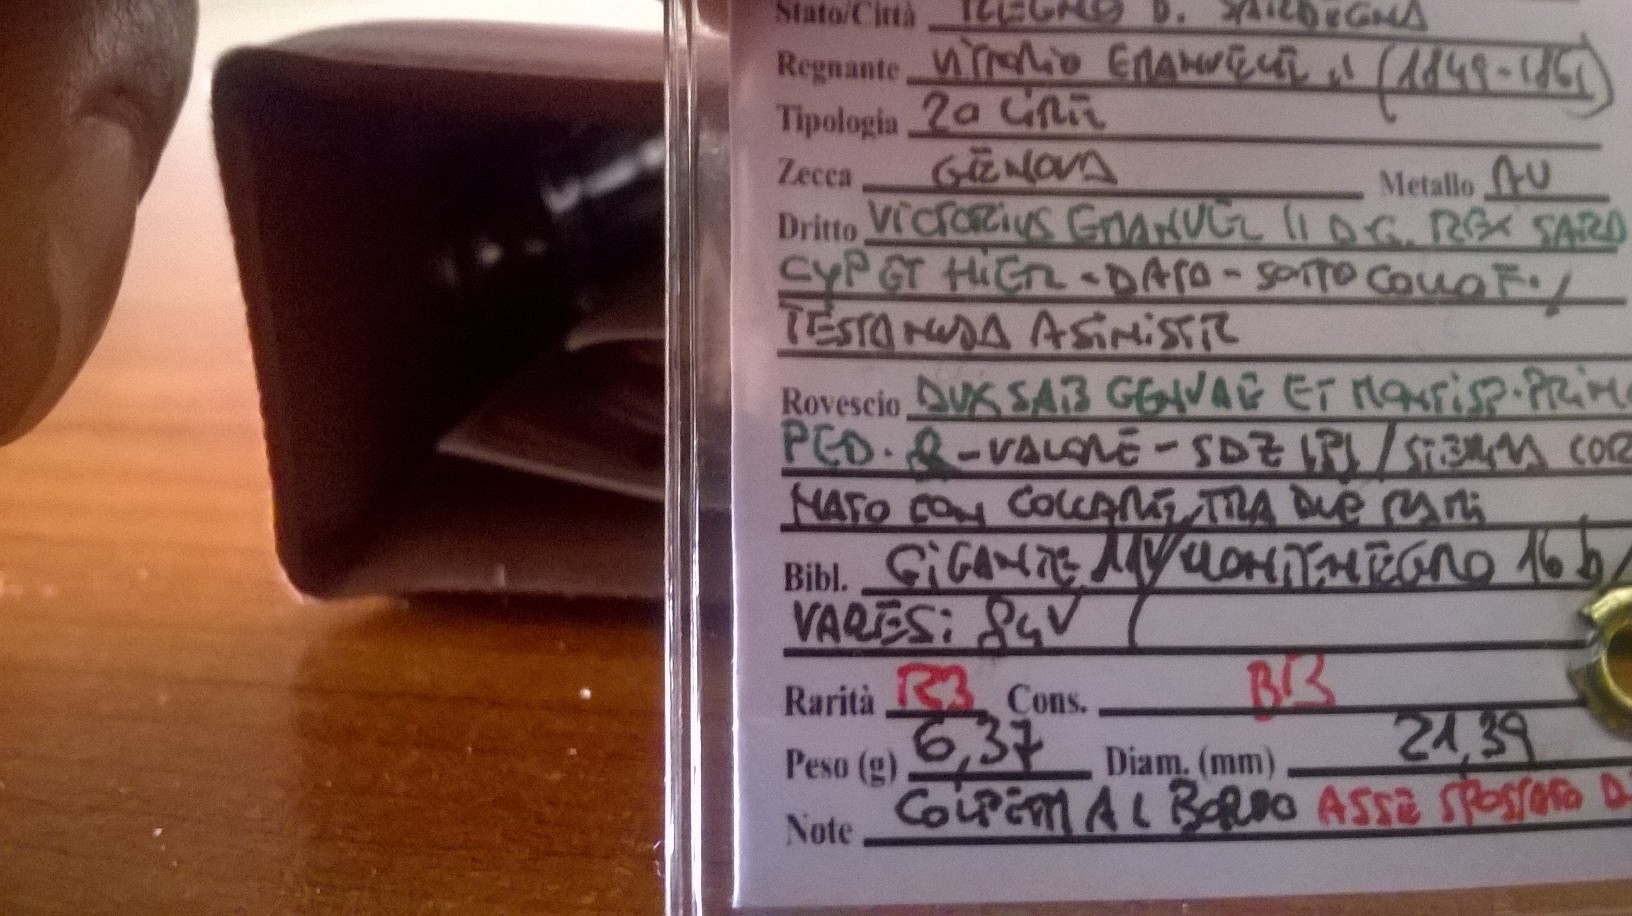 Stato/Città REGNO D. SARDEGNA
Regnante VITTORIO EMANUELE II (1849-1861)
Tipologia 20 LIRE
Zecca GENOVA Metallo AU
Dritto VICTORIUS EMANUEL II D.G. REX SARD
CYP ET HIER - DATA - SOTTO COLLO F. /
TESTA NUDA A SINISTR
Rovescio DUX SAB GENUAE ET MONTISP. PRINC
PED. & - VALORE - SDZ (P) / STEMMA COR
NATO CON COLLARE, TRA DUE RAMI
Bibl. GIGANTE / MONTENEGRO 16 b /
VARESI
Rarità R3 Cons. BB
Peso (g) 6,37 Diam. (mm) 21,39
Note COLPETTI AL BORDO ASSE SPOSTATO D